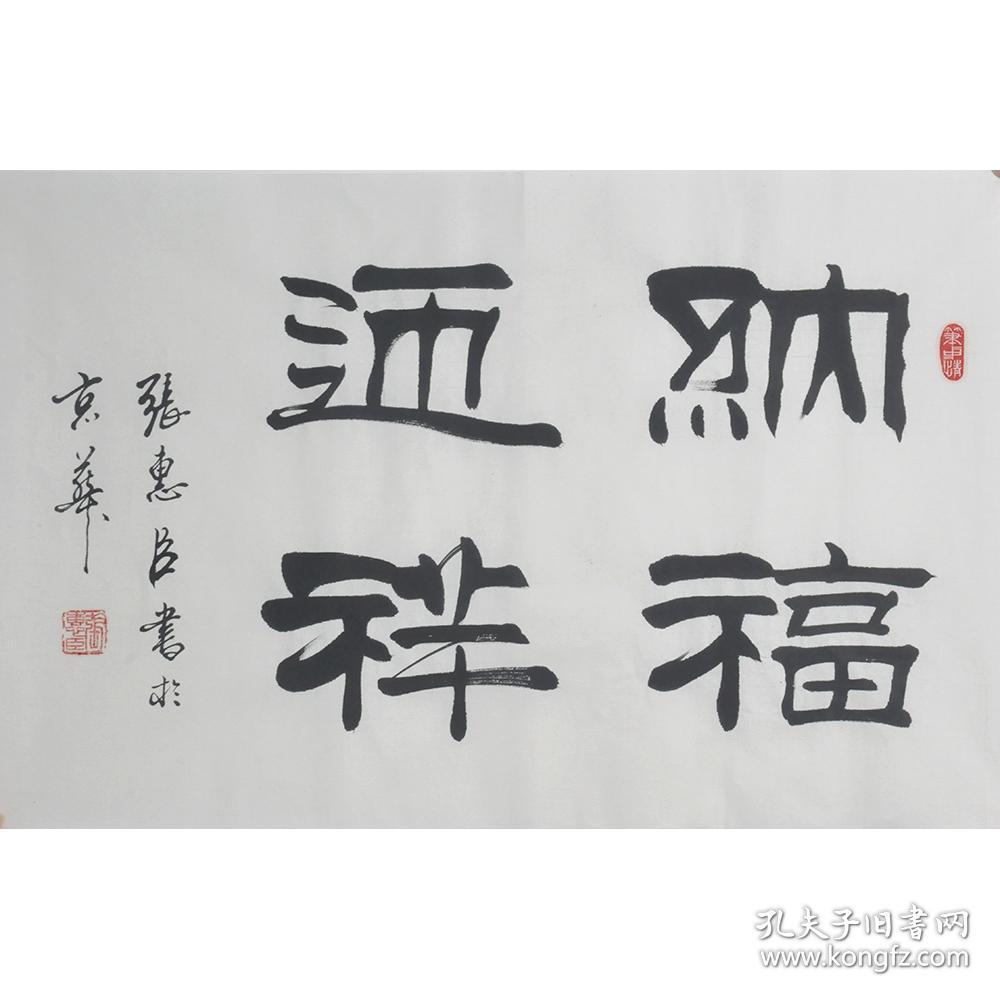 納福
迎祥
張惠臣書於
京華
筆中情
張惠臣
孔夫子旧书网
www.kongfz.com